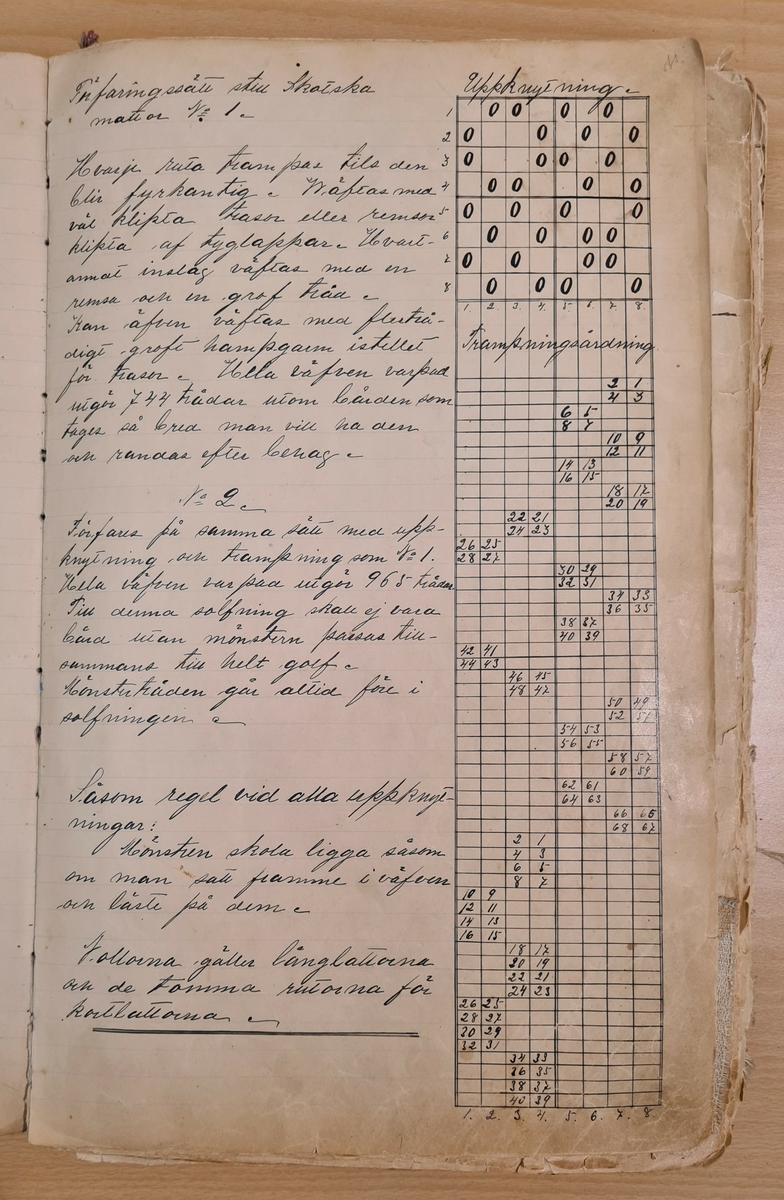 Förfaringssätt till Skotska
mattor No 1.
Hvarje ruta trampas tills den
blir fyrkantig. Wäftas med
väl klipta trasor eller remsor
klipta af tyglappar. Hvart-
annat inslag väftas med en
remsa och en grof tråd.
Kan äfven väftas med flertrå-
digt groft hampgarn istället
för trasor. Hela väfven varpad
utgör 744 trådar utom bården som
tages så bred man vill ha den
och randas efter behag.
No 2.
Förfares på samma sätt med upp-
knytning och trampning som No 1.
Hela väfven varpad utgör 965 trådar
Till denna solfning skall ej vara
bård utan mönstern passas till-
sammans till helt golf.
Mönstertråden går alltid före i
solfningen.
Såsom regel vid alla uppknyt-
ningar:
Mönstren skola ligga såsom
om man satt framme i väfven
och läste på dem.
Nollorna gäller långlattorna
och de tomma rutorna för
kortlattorna.
Uppknytning.
1 0 0 0 0
2 0 0 0 0
3 0 0 0 0
4 0 0 0 0
5 0 0 0 0
6 0 0 0 0
7 0 0 0 0
8 0 0 0 0
1. 2. 3. 4. 5. 6. 7. 8.
Trampningsordning
2 1
4 3
6 5
8 7
10 9
12 11
14 13
16 15
18 17
20 19
22 21
24 23
26 25
28 27
30 29
32 31
34 33
36 35
38 37
40 39
42 41
44 43
46 45
48 47
50 49
52 51
54 53
56 55
58 57
60 59
62 61
64 63
66 65
68 67
2 1
4 3
6 5
8 7
10 9
12 11
14 13
16 15
18 17
20 19
22 21
24 23
26 25
28 27
30 29
32 31
34 33
36 35
38 37
40 39
1. 2. 3. 4. 5. 6. 7. 8.